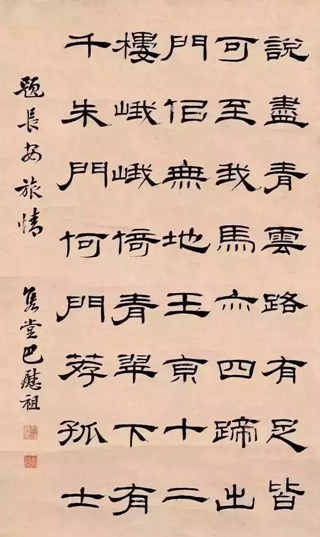 說盡青雲路有足皆
可至我馬亦四蹄出
門佀無地玉京十二
樓峨峨倚青翠下有
千朱門何門荐孤士
題長安旅情 雋堂巴慰祖